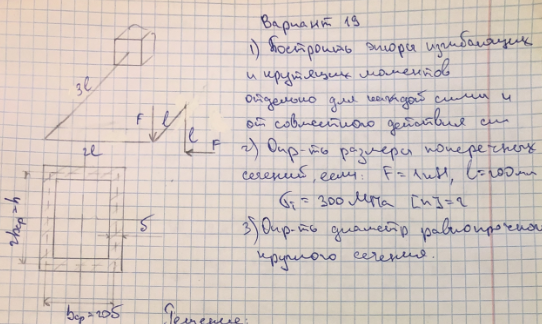 Вариант 19
1) Построить эпюры изгибающих
и крутящих моментов
отдельно для каждой силы и
от совместного действия сил
2) Опр-ть размеры поперечных
сечений, если: F = 1кН, l = 200мм
σт = 300 МПа [n] = 2
3) Опр-ть диаметр равнопрочного
круглого сечения.
Решение:
3l
2l
F
l
l
F
2bср = h
δ
bср = 20δ